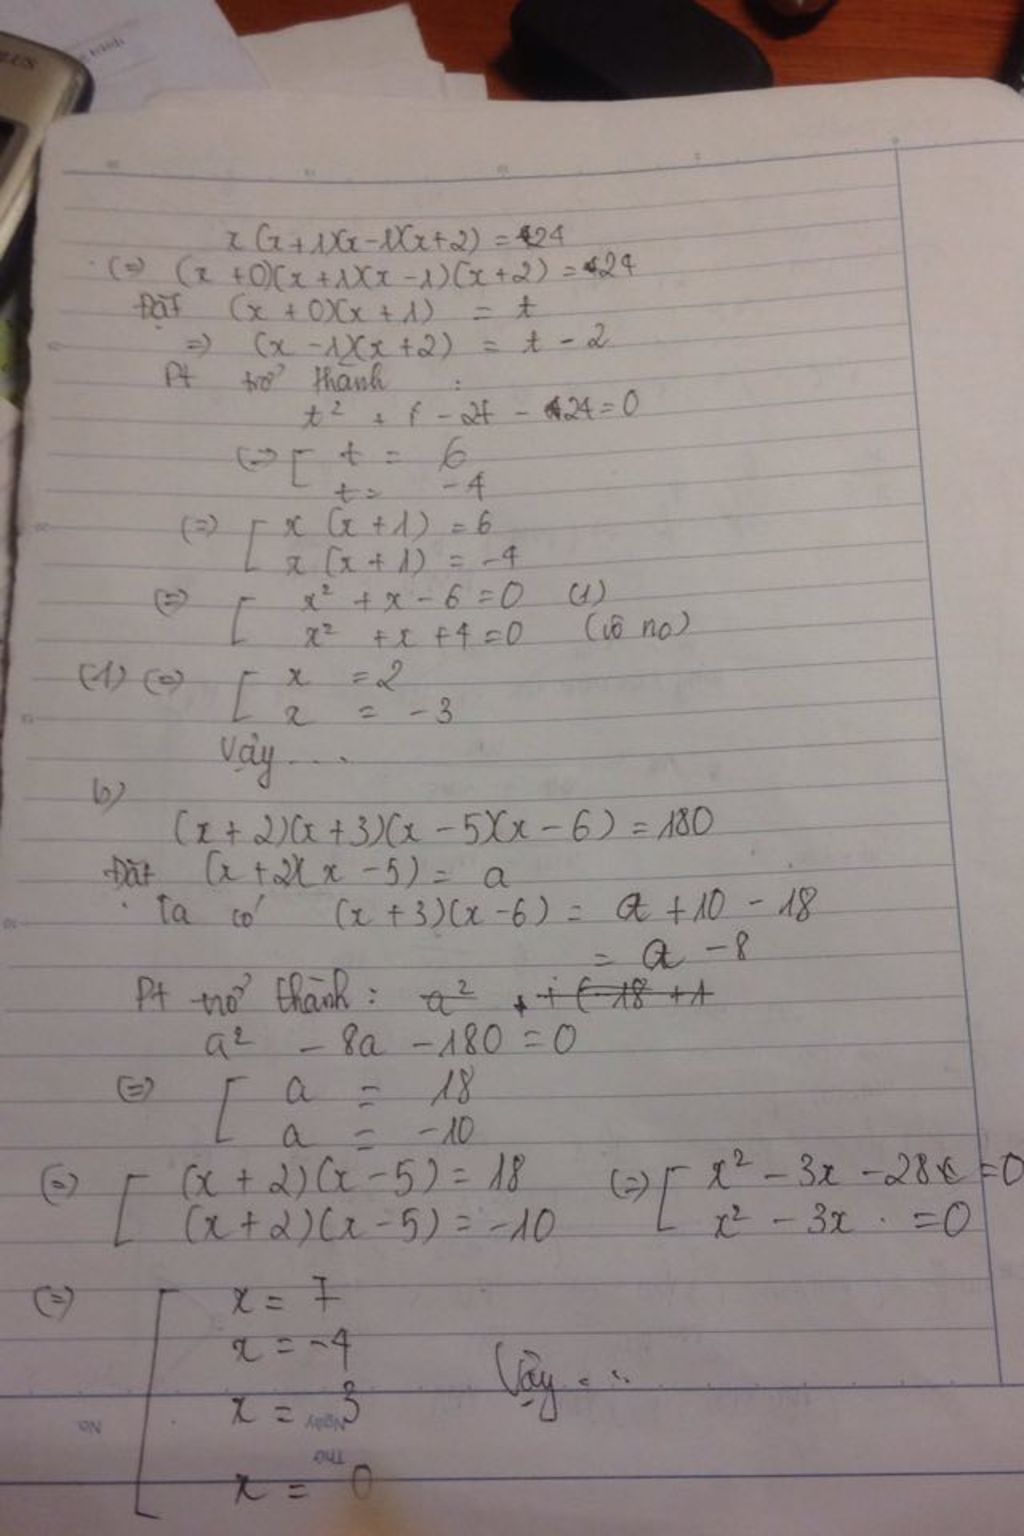 x(x+1)(x-1)(x+2) = 24
(=) (x+0)(x+1)(x-1)(x+2) = 24
Đặt (x+0)(x+1) = t
=) (x-1)(x+2) = t - 2
Pt trở thành :
t² - 2t - 24 = 0
(=) [ t = 6
t = -4
(=) [ x (x+1) = 6
x (x+1) = -4
(=) [ x² + x - 6 = 0 (1)
x² + x + 4 = 0 (vô no)
(1) (=) [ x = 2
x = -3
Vậy ...
b)
(x+2)(x+3)(x-5)(x-6) = 180
Đặt (x+2)(x-5) = a
Ta có (x+3)(x-6) = a + 10 - 18
= a - 8
Pt trở thành : a²
a² - 8a - 180 = 0
(=) [ a = 18
a = -10
(=) [ (x+2)(x-5) = 18 (=) [ x² - 3x - 28 = 0
(x+2)(x-5) = -10 x² - 3x = 0
(=) [ x = 7
x = -4
Vậy ...
x = 3
Ngày
No
Thứ
x = 0